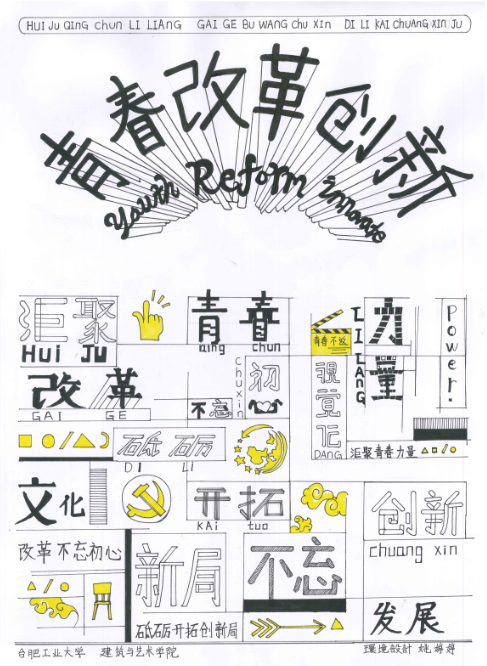 HUI JU QING chun LI LIANG GAI GE BU WANG chu xin DI LI KAI chuANG XIN JU
青春改革创新
Youth Reform innovate
汇聚
Hui Ju
青春
qing chun
青春不散
力量
LI LiANG
Power.
改革
GAI GE
不忘
初心
chuxin
强党记
DANG
汇聚青春力量
砥砺
DI LI
文化
开拓
KAi tuo
创新
chuang xin
改革不忘初心
新局
不忘
砥砺开拓创新局
发展
合肥工业大学 建筑与艺术学院
環境設計